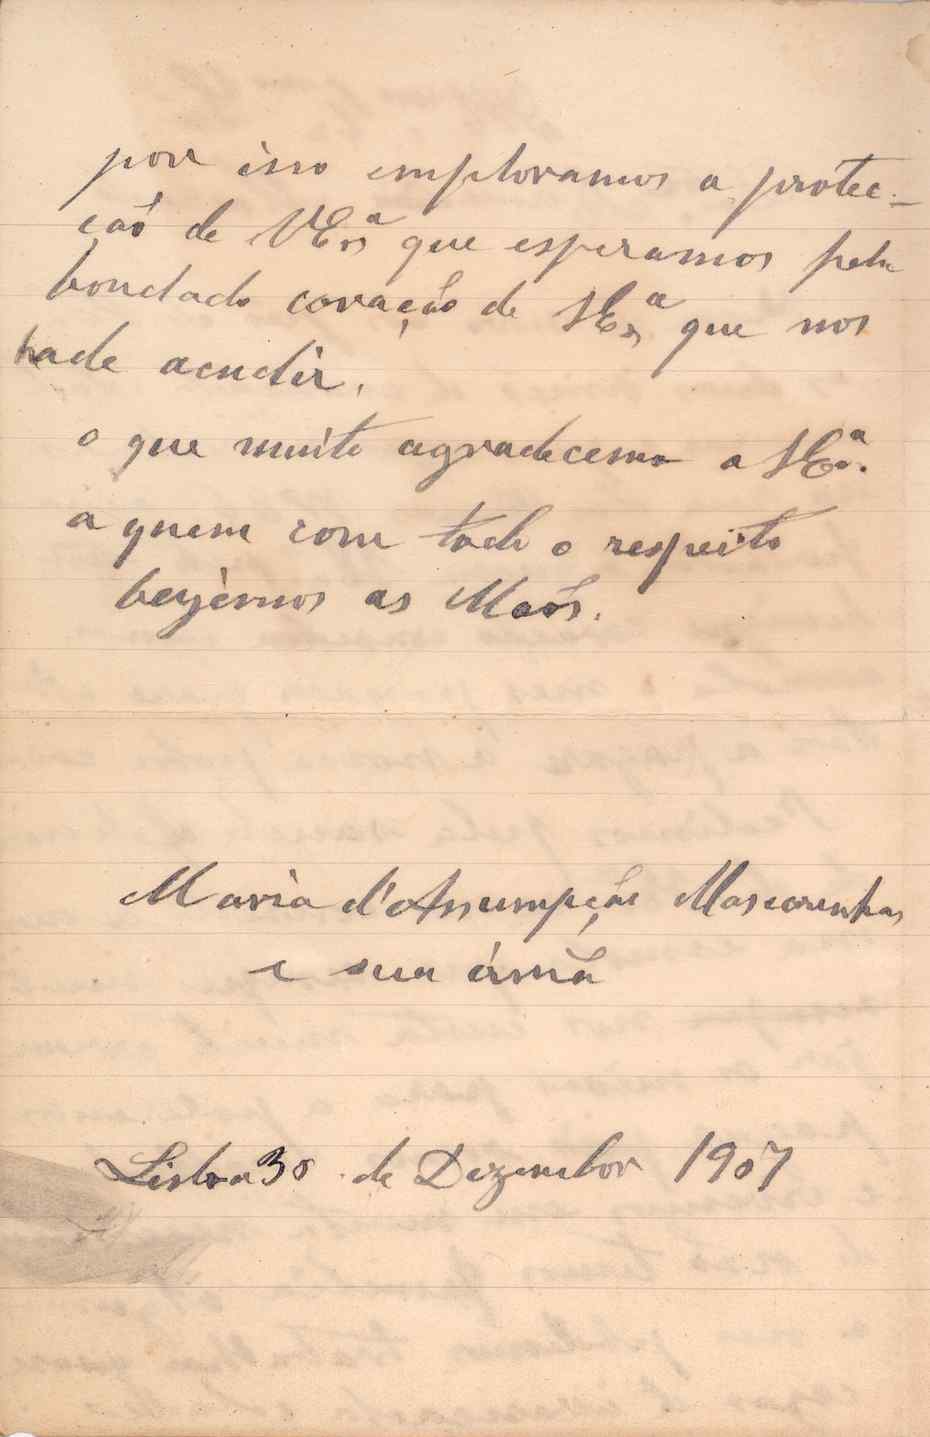 por isso emploramos a protec-
ção de V Exª que esperamos pelu
bondado coração de V Exª que nos
hade acudir.
o que muito agradecemo a V Exª.
a quem com todo o respeito
beijèmos as Maõs.
Maria d'Assumpção Mascarenhas
e sua irmã
Lisboa 30 de Dezembor 1907